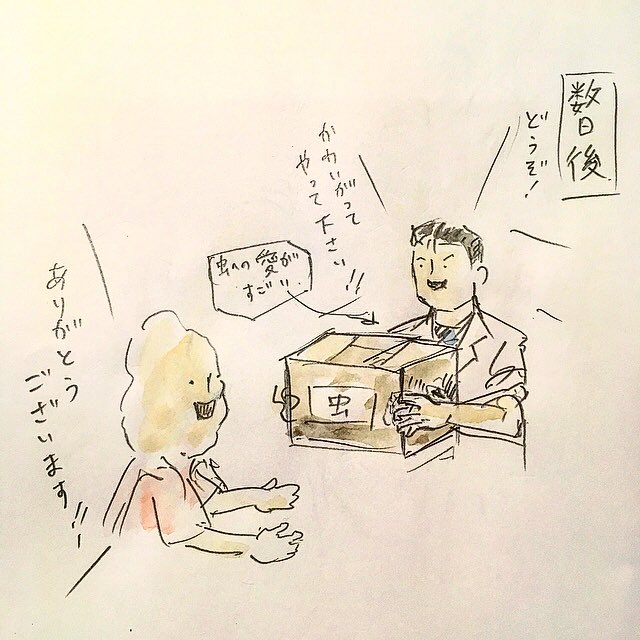 数日後
どうぞ！
かわいがって
やって下さい！！
虫への愛が
すごい
虫
ありがとう
ございます！！